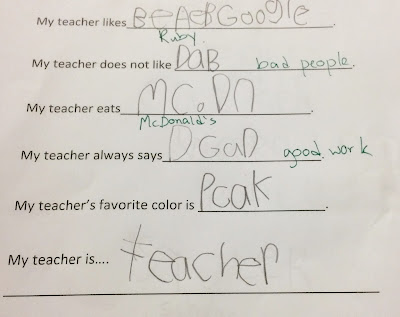 My teacher likes BEAEBGooglE
Ruby
My teacher does not like DaB bad people.
My teacher eats MC.DN.
McDonald's
My teacher always says DGaD good work
My teacher's favorite color is Pcak.
My teacher is.... teacher